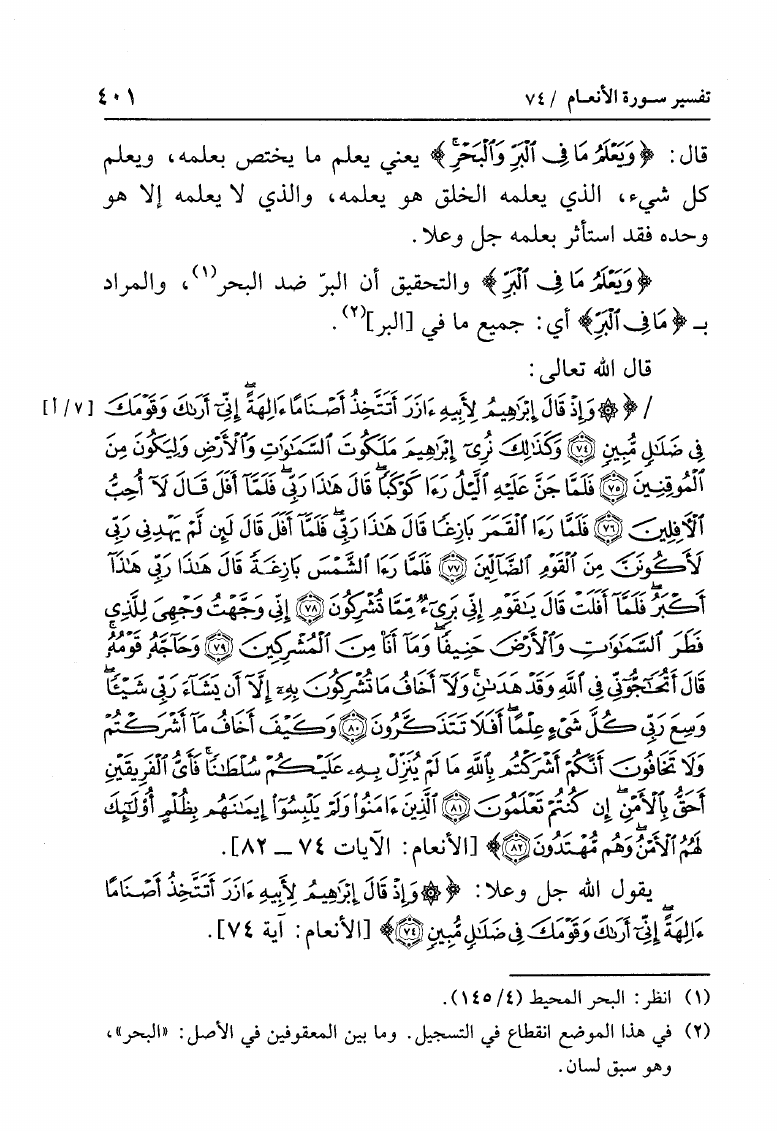 تفسير سورة الأنعام / ٧٤ ٤٠١
قال: ﴿وَيَعْلَمُ مَا فِي ٱلْبَرِّ وَٱلْبَحْرِۚ﴾ يعني يعلم ما يختص بعلمه، ويعلم
كل شيء، الذي يعلمه الخلق هو يعلمه، والذي لا يعلمه إلا هو
وحده فقد استأثر بعلمه جل وعلا.
﴿وَيَعْلَمُ مَا فِي ٱلْبَرِّ﴾ والتحقيق أن البرّ ضد البحر(١)، والمراد
بـ ﴿مَا فِي ٱلْبَرِّ﴾ أي: جميع ما في [البر](٢).
قال الله تعالى:
/ ﴿۞ وَإِذْ قَالَ إِبْرَٰهِيمُ لِأَبِيهِ ءَازَرَ أَتَتَّخِذُ أَصْنَامًا ءَالِهَةً ۖ إِنِّيٓ أَرَىٰكَ وَقَوْمَكَ [٧/أ]
فِي ضَلَٰلٍ مُّبِينٍ ٧٤ وَكَذَٰلِكَ نُرِيٓ إِبْرَٰهِيمَ مَلَكُوتَ ٱلسَّمَٰوَٰتِ وَٱلْأَرْضِ وَلِيَكُونَ مِنَ
ٱلْمُوقِنِينَ ٧٥ فَلَمَّا جَنَّ عَلَيْهِ ٱلَّيْلُ رَءَا كَوْكَبًا ۖ قَالَ هَٰذَا رَبِّي ۖ فَلَمَّآ أَفَلَ قَالَ لَآ أُحِبُّ
ٱلْأٓفِلِينَ ٧٦ فَلَمَّا رَءَا ٱلْقَمَرَ بَازِغًا قَالَ هَٰذَا رَبِّي ۖ فَلَمَّآ أَفَلَ قَالَ لَئِن لَّمْ يَهْدِنِي رَبِّي
لَأَكُونَنَّ مِنَ ٱلْقَوْمِ ٱلضَّآلِّينَ ٧٧ فَلَمَّا رَءَا ٱلشَّمْسَ بَازِغَةً قَالَ هَٰذَا رَبِّي هَٰذَآ
أَكْبَرُ ۖ فَلَمَّآ أَفَلَتْ قَالَ يَٰقَوْمِ إِنِّي بَرِيٓءٌ مِّمَّا تُشْرِكُونَ ٧٨ إِنِّي وَجَّهْتُ وَجْهِيَ لِلَّذِي
فَطَرَ ٱلسَّمَٰوَٰتِ وَٱلْأَرْضَ حَنِيفًا ۖ وَمَآ أَنَا۠ مِنَ ٱلْمُشْرِكِينَ ٧٩ وَحَآجَّهُۥ قَوْمُهُۥ ۚ
قَالَ أَتُحَٰٓجُّوٓنِّي فِي ٱللَّهِ وَقَدْ هَدَىٰنِ ۚ وَلَآ أَخَافُ مَا تُشْرِكُونَ بِهِۦٓ إِلَّآ أَن يَشَآءَ رَبِّي شَيْـًٔا ۗ
وَسِعَ رَبِّي كُلَّ شَيْءٍ عِلْمًا ۗ أَفَلَا تَتَذَكَّرُونَ ٨٠ وَكَيْفَ أَخَافُ مَآ أَشْرَكْتُمْ
وَلَا تَخَافُونَ أَنَّكُمْ أَشْرَكْتُم بِٱللَّهِ مَا لَمْ يُنَزِّلْ بِهِۦ عَلَيْكُمْ سُلْطَٰنًا ۚ فَأَيُّ ٱلْفَرِيقَيْنِ
أَحَقُّ بِٱلْأَمْنِ ۖ إِن كُنتُمْ تَعْلَمُونَ ٨١ ٱلَّذِينَ ءَامَنُوا۟ وَلَمْ يَلْبِسُوٓا۟ إِيمَٰنَهُم بِظُلْمٍ أُو۟لَٰٓئِكَ
لَهُمُ ٱلْأَمْنُ وَهُم مُّهْتَدُونَ ٨٢﴾ [الأنعام: الآيات ٧٤ ــ ٨٢].
يقول الله جل وعلا: ﴿۞ وَإِذْ قَالَ إِبْرَٰهِيمُ لِأَبِيهِ ءَازَرَ أَتَتَّخِذُ أَصْنَامًا
ءَالِهَةً ۖ إِنِّيٓ أَرَىٰكَ وَقَوْمَكَ فِي ضَلَٰلٍ مُّبِينٍ ٧٤﴾ [الأنعام: آية ٧٤].
(١) انظر: البحر المحيط (٤/١٤٥).
(٢) في هذا الموضع انقطاع في التسجيل. وما بين المعقوفين في الأصل: «البحر»،
وهو سبق لسان.